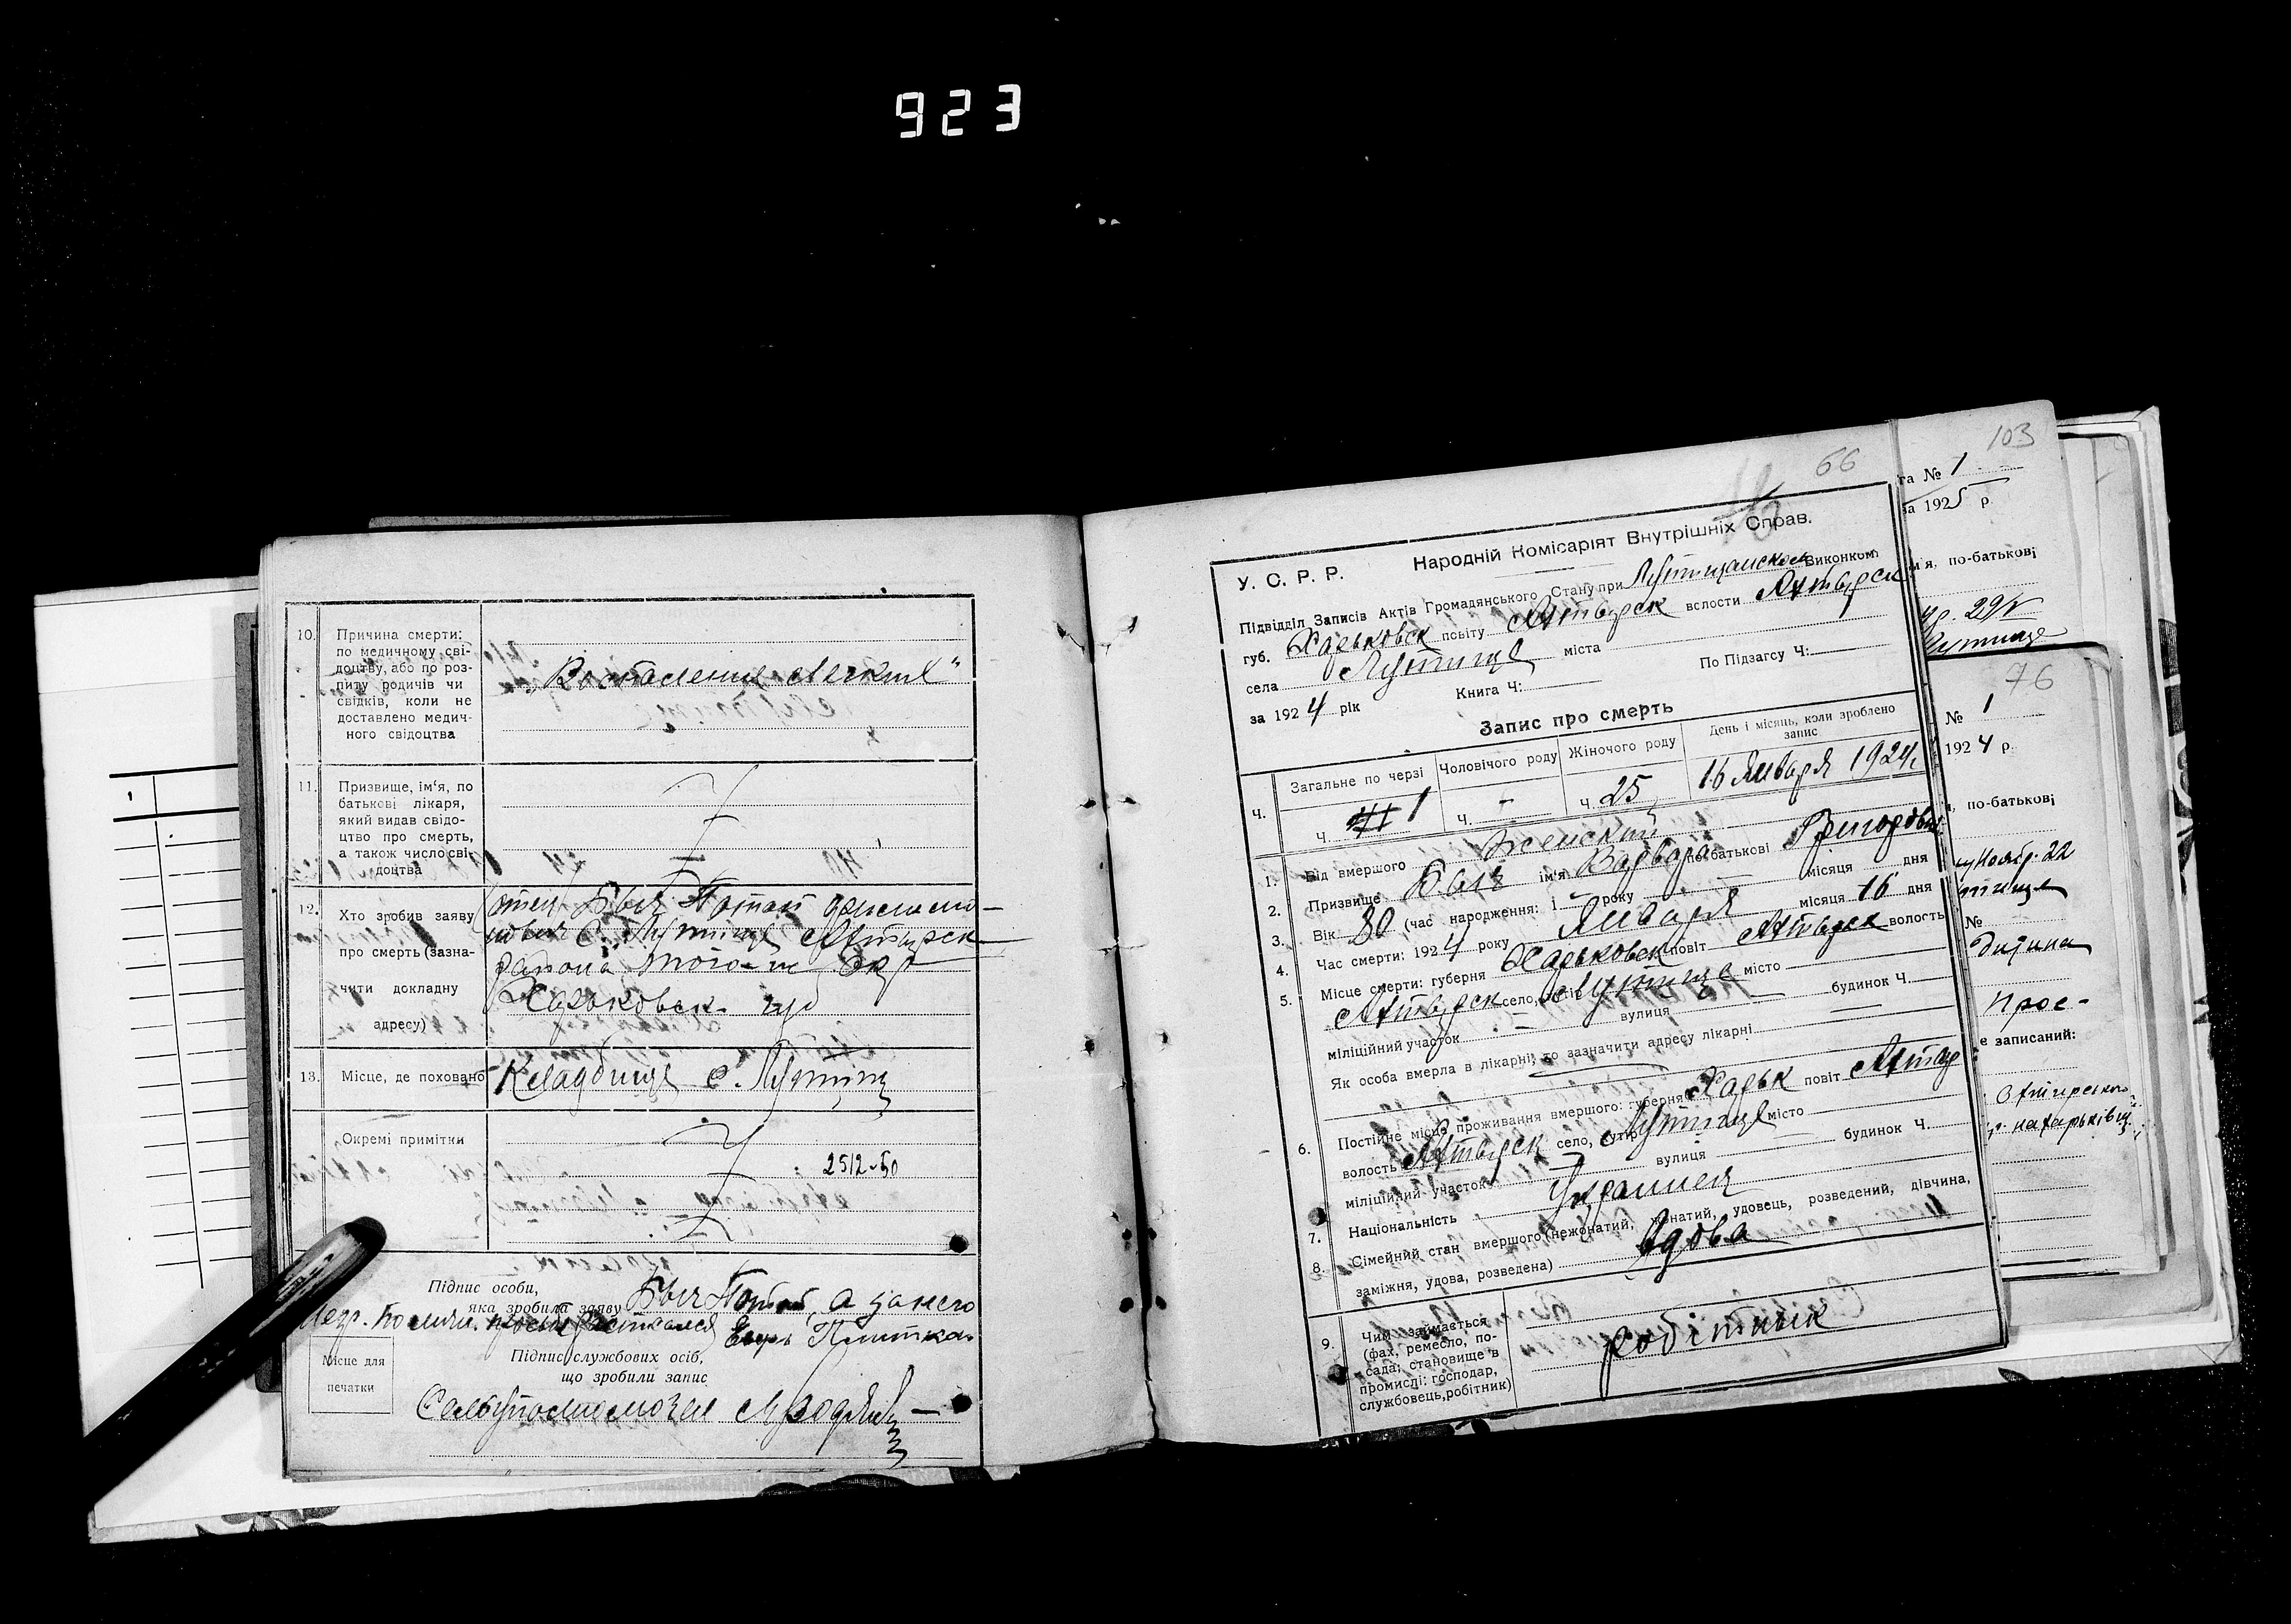 923
10. Причина смерти:
по медичному сві-
доцтву, або по роз-
питу родичів чи
свідків, коли не
доставлено медич-
ного свідоцтва
„Воспаление легких"
11. Призвище, ім'я, по
батькові лікаря,
який видав свідо-
цтво про смерть,
а також число сві-
доцтва
12. Хто зробив заяву
про смерть (зазна-
чити докладну
адресу)
отец Быч Потап
с. Лутище Ахтырск
района того-ж Окр
Харьковск губ
13. Місце, де поховано
Кладбище с. Лутищ
Окремі примітки
2512-50
Підпис особи,
яка зробила заяву Быч Потап, а за него
негр. по личн. просьбе расписался Егор Плитка
Місце для
печатки
Підпис службових осіб,
що зробили запис
66
У. С. Р. Р. Народній Комісаріят Внутрішніх Справ.
Підвідділ Записів Актів Громадянського Стану при Лутищанском Виконком
губ. Харьковск повіту Ахтырск вслости Ахтырск
села Лутище міста
за 1924 рік Книга Ч: По Підзагсу Ч:
Запис про смерть
Ч. Загальне по черзі Чоловічого роду Жіночого роду День і місяць, коли зроблено
запис
ч. 1 ч. - ч. 25 16 Января 1924 г
1. Від вмершого женский
2. Призвище Быч ім'я Варвара по-батькові Григоровна
3. Вік 80 (час народження: і року місяця дня
4. Час смерти: 1924 року Января місяця 16 дня
5. Місце смерти: губерня Харьковск повіт Ахтырск волость
Ахтырск село, хутір Лутище місто
міліційний участок вулиця будинок Ч.
Як особа вмерла в лікарні, то зазначити адресу лікарні
6. Постійне місце проживання вмершого: губерня Харьк повіт Ахтыр
волость Ахтырск село, хутір Лутище місто
міліційний участок вулиця будинок Ч.
7. Національність Украинец
8. Сімейний стан вмершого (нежонатий, жонатий, удовець, розведений, дівчина,
заміжня, удова, розведена) Вдова
9. Чим займається
(фах, ремесло, по-
сада; становище в
промислі: господар,
службовець, робітник)
робітник
103
та № 1
за 1925 р.
м'я, по-батькові
76
№ 1
1924 р.
, по-батькові
Ноябр. 22
№
дитина
прос-
е записаний: